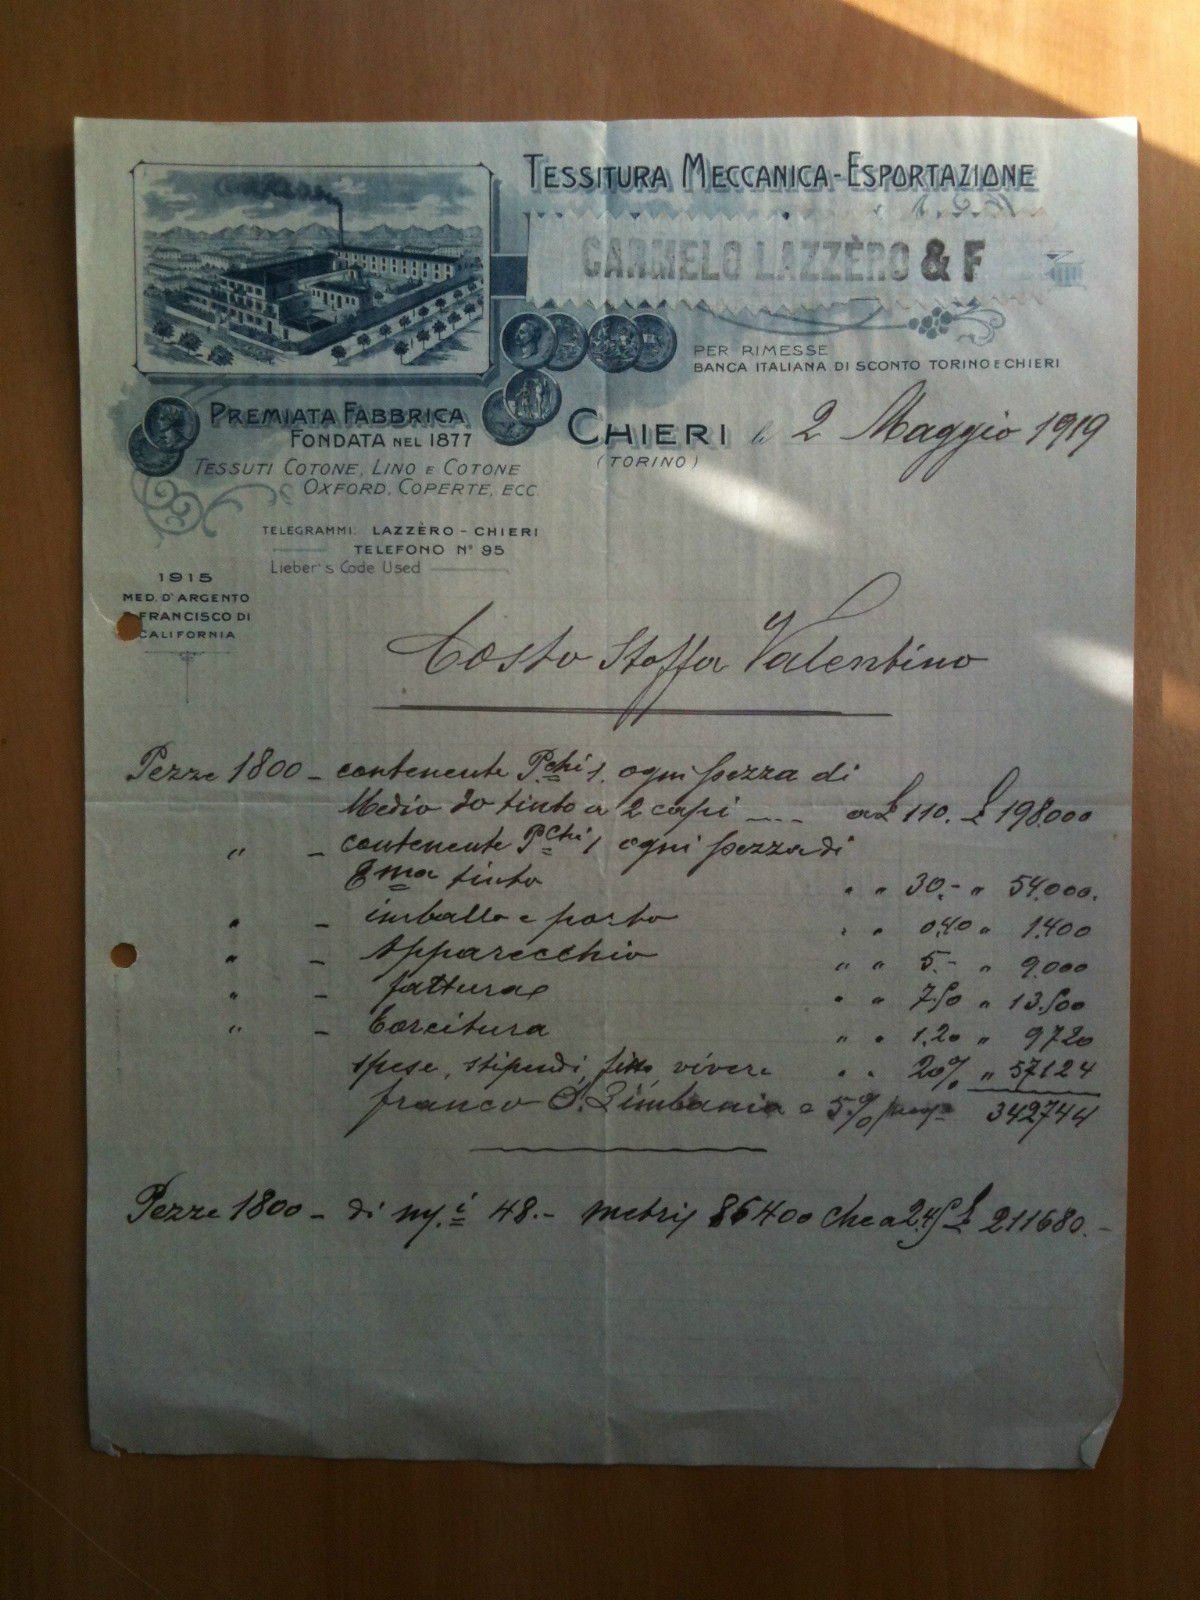 TESSITURA MECCANICA-ESPORTAZIONE
CARMELO LAZZÈRO & F
PER RIMESSE
BANCA ITALIANA DI SCONTO TORINO E CHIERI
PREMIATA FABBRICA
FONDATA NEL 1877
TESSUTI COTONE, LINO E COTONE
OXFORD, COPERTE, ECC.
CHIERI li 2 Maggio 1919
(TORINO)
TELEGRAMMI: LAZZÈRO - CHIERI
TELEFONO Nº 95
Lieber's Code Used
1915
MED. D'ARGENTO
FRANCISCO DI
CALIFORNIA
Costo Stoffa Valentino
Pezze 1800 - contenente P.chi 1. ogni pezza di
Medio 20 tinto a 2 capi .... a £ 110. £ 198.000
" - contenente Pchi 1 ogni pezza di
tinto " " 30.- " 54.000.
" - imballo e porto " " 0.40 " 1.400
" - Apparecchio " " 5.- " 9.000
" - fattura " " 7.50 " 13.500
" - torcitura " " 1.20 " 9720
spese, stipendi, fitto, vivere " " 20% " 57124
franco S. Limbania e 5% 342744
Pezze 1800 - di 48.- metri 86400 che a 2.45 £ 211680.-